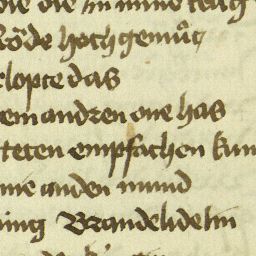 die die
Röde hochgemůt
clopte das
em andren one has
teten empfachen kun
me anden mund
ning Brandelidelin